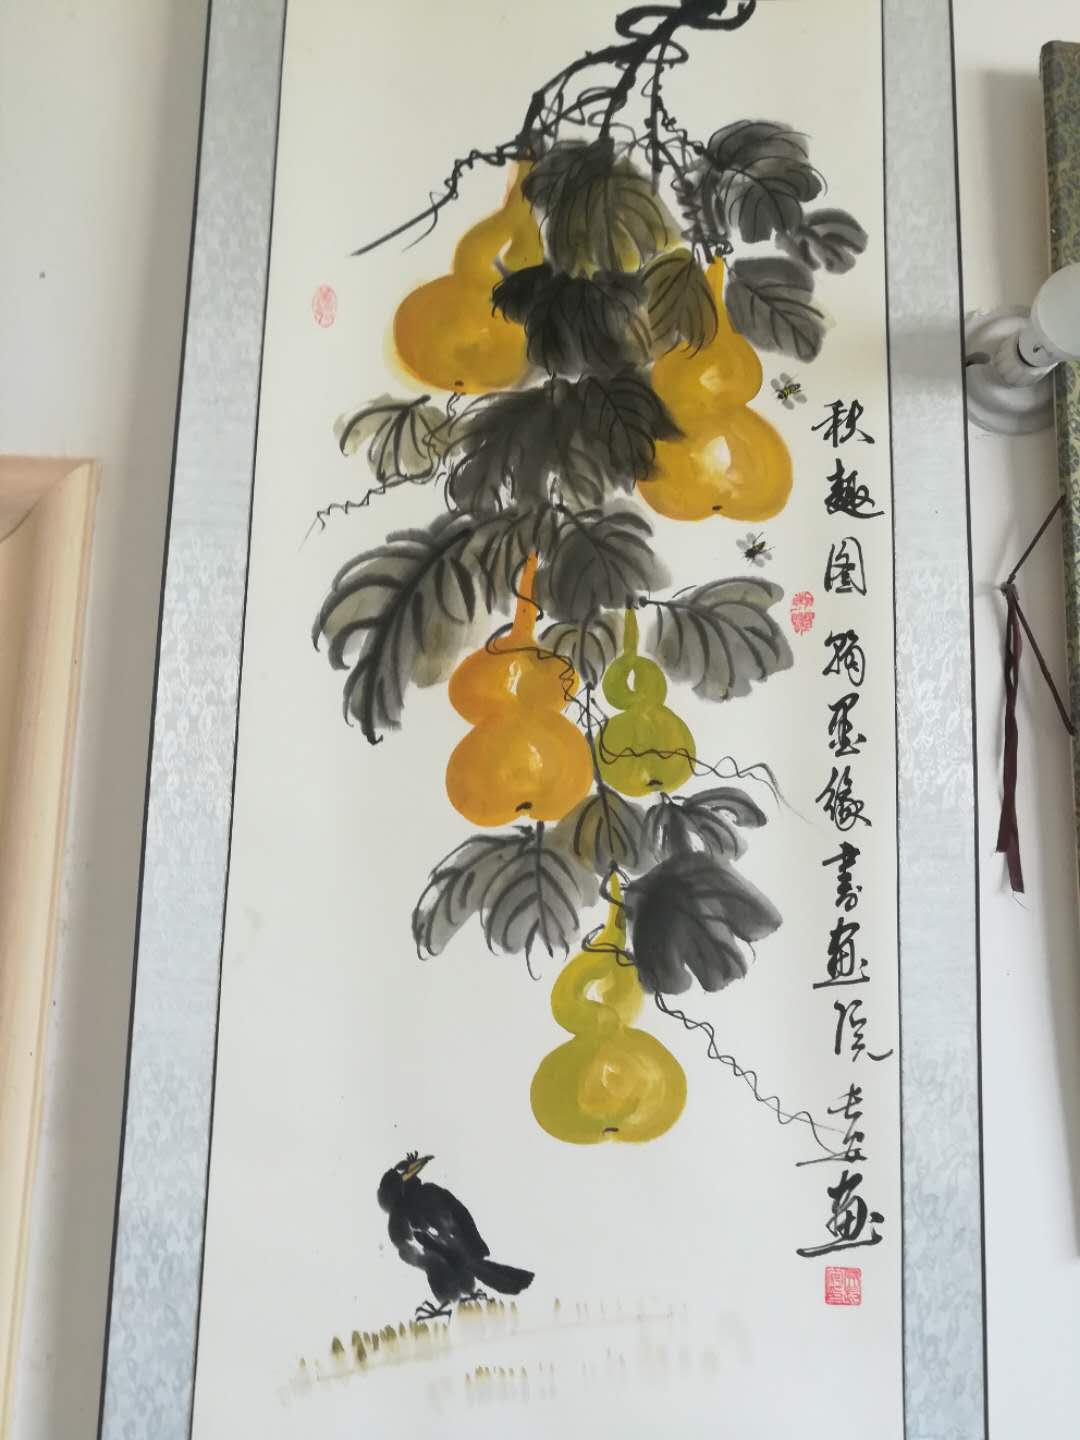 秋趣图 翰墨缘书画院 长安画